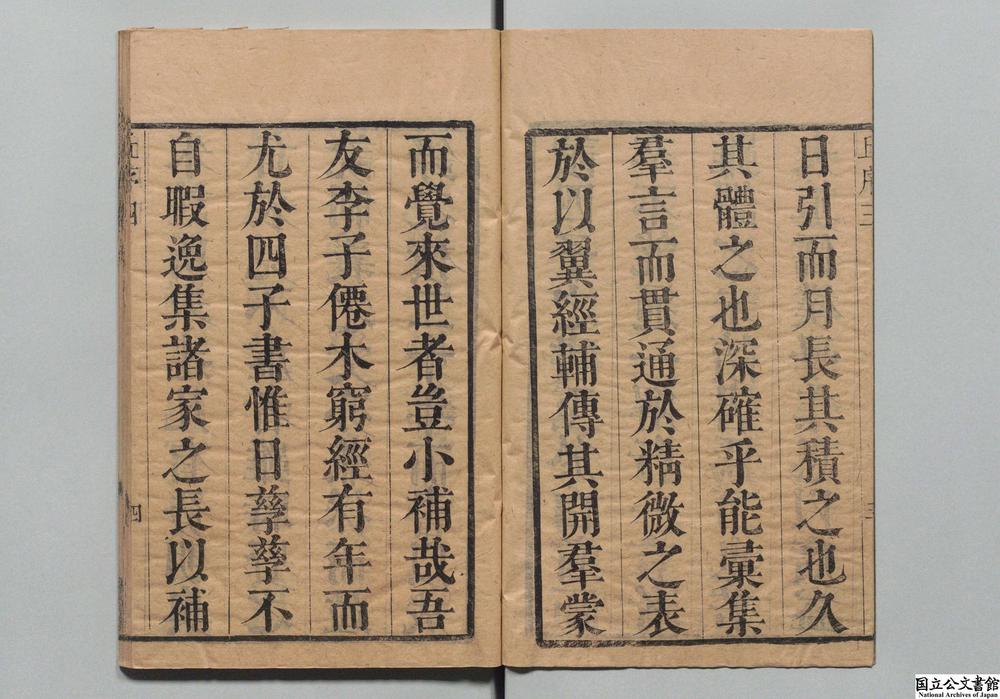 日引而月長其積之也久
其體之也深確乎能彚集
羣言而貫通於精微之表
於以翼經輔傳其開羣蒙
而覺來世者豈小補哉吾
友李子僊木窮經有年而
尤於四子書惟日孳孳不
自暇逸集諸家之長以補
四
国立公文書館
National Archives of Japan